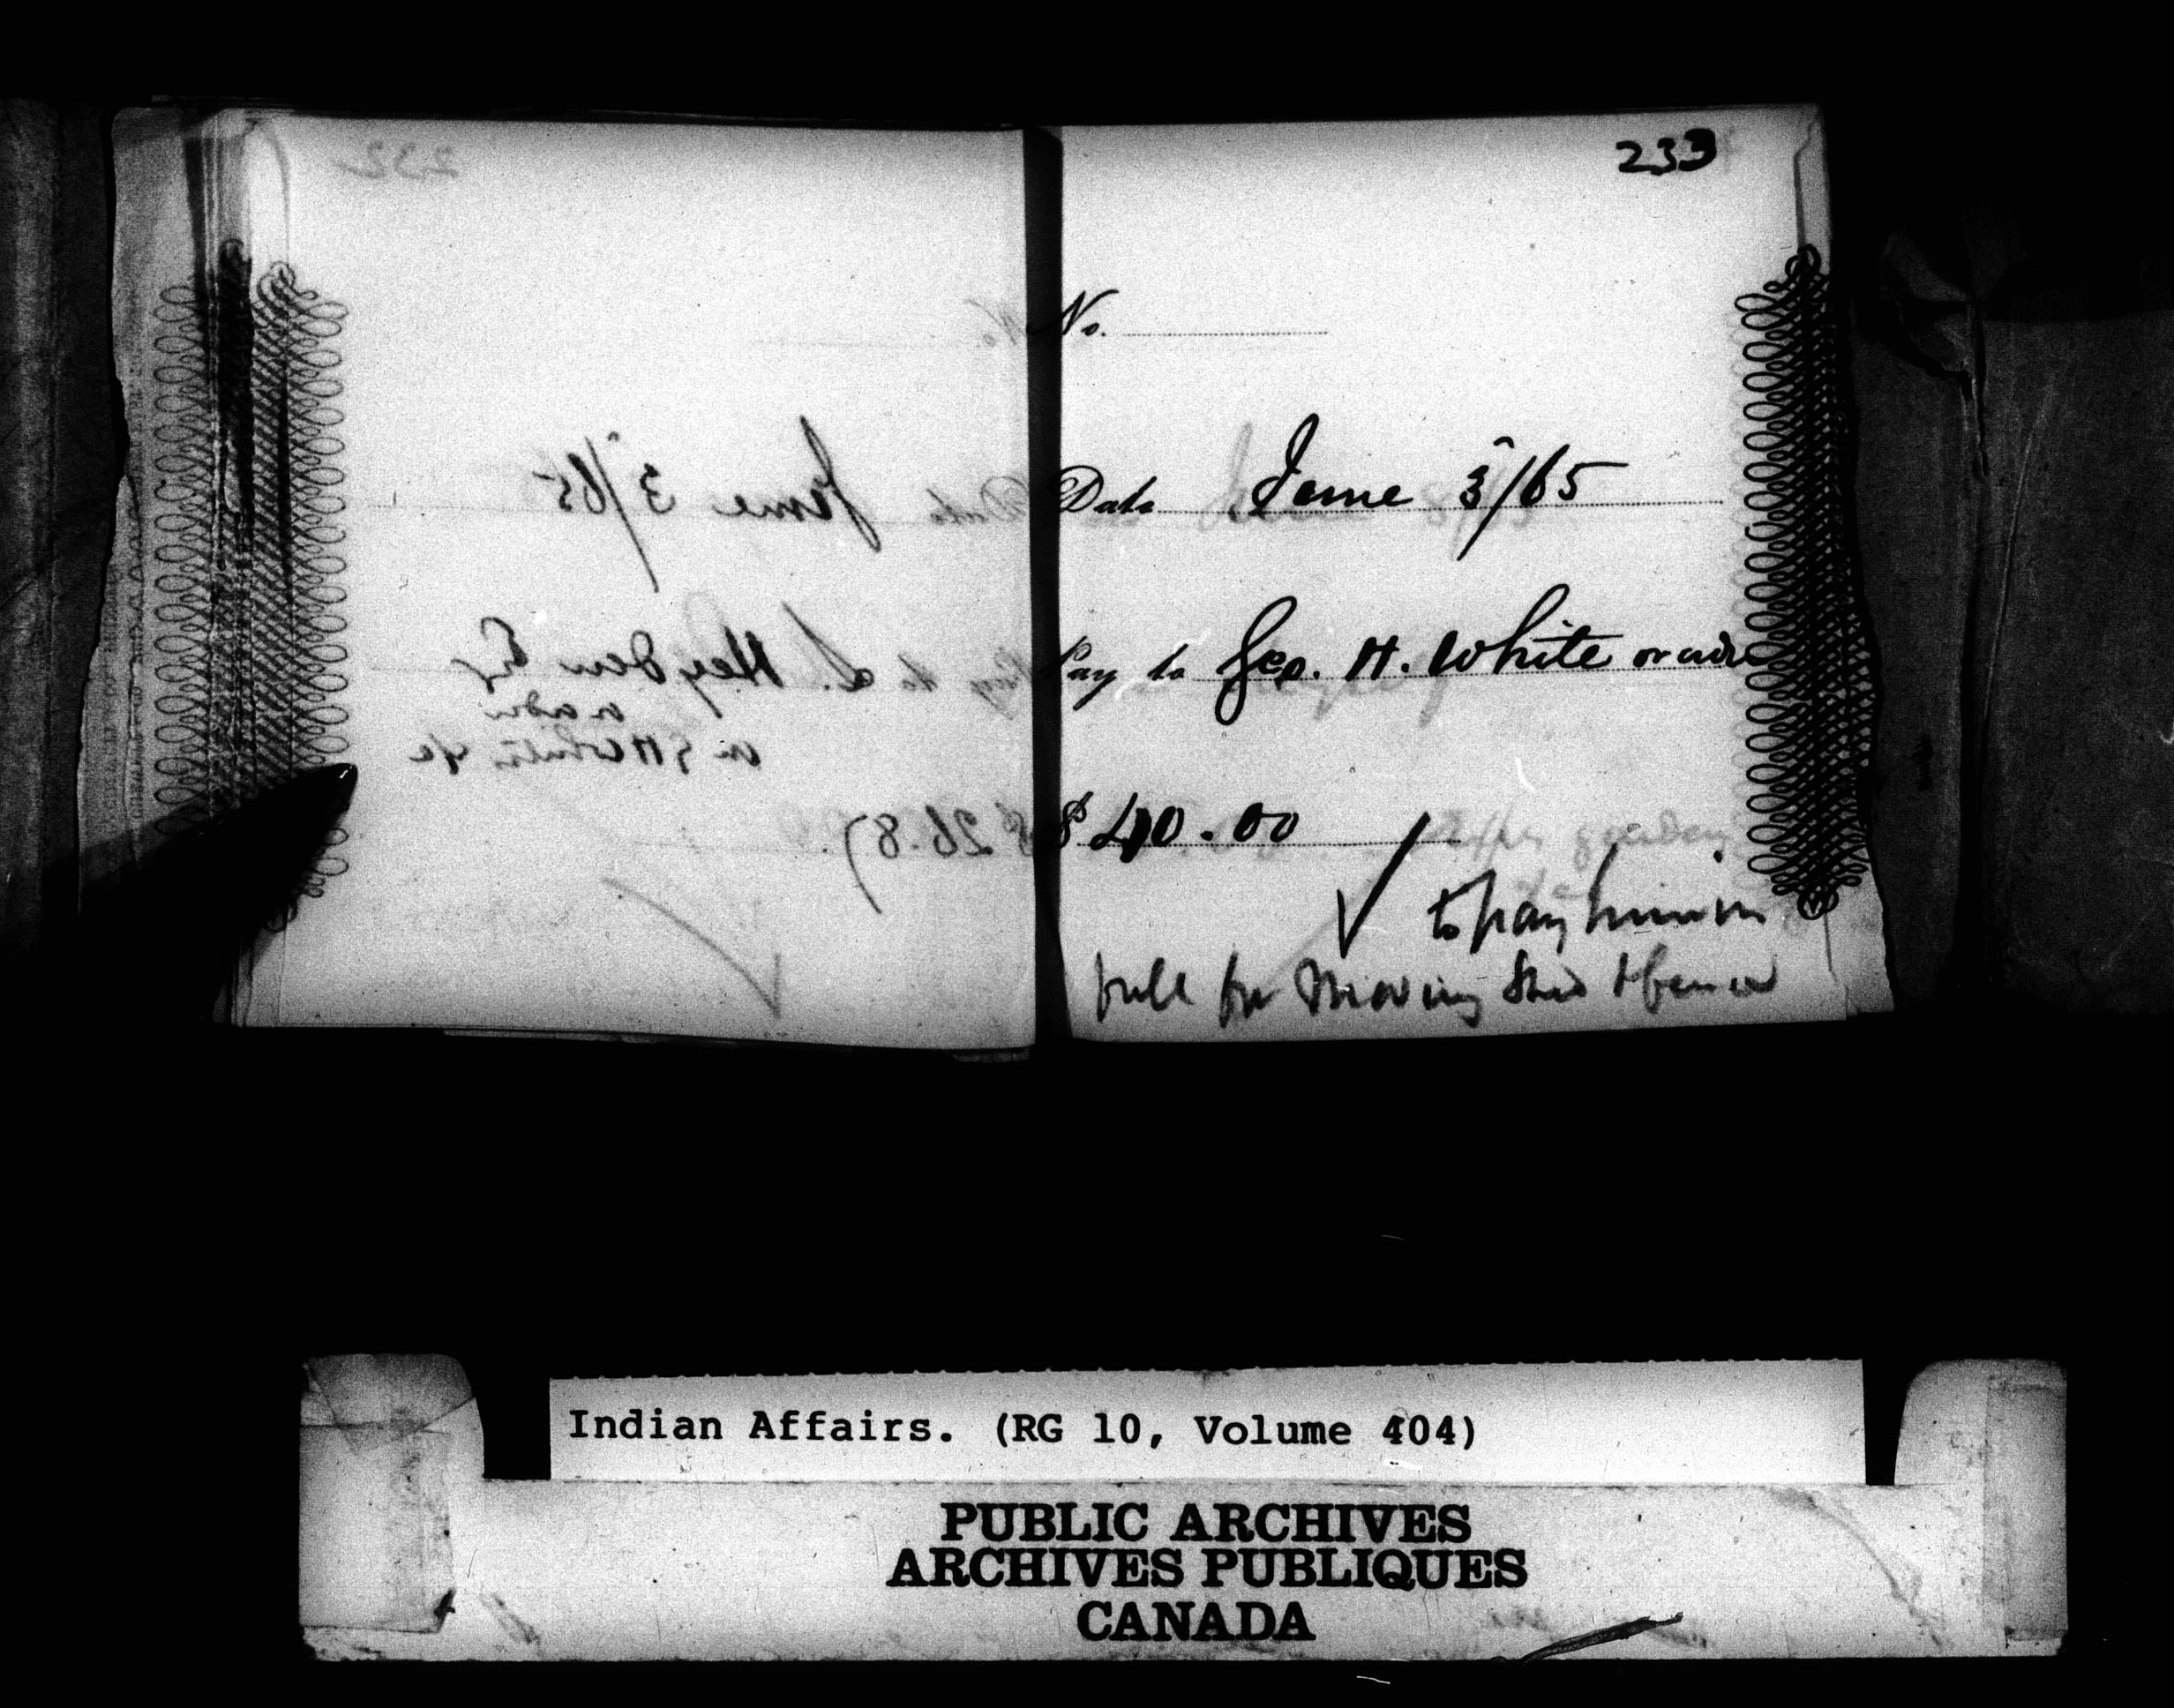 232
No.
Date June 3/65
Pay to S. Heyden Esq
or order
in G H White a/c
$ 26.87
233
No.
Date June 3/65
Pay to Geo. H. White or order
$ 40.00
to pay
bill for moving Shed & fence
Indian Affairs. (RG 10, Volume 404)
PUBLIC ARCHIVES
ARCHIVES PUBLIQUES
CANADA